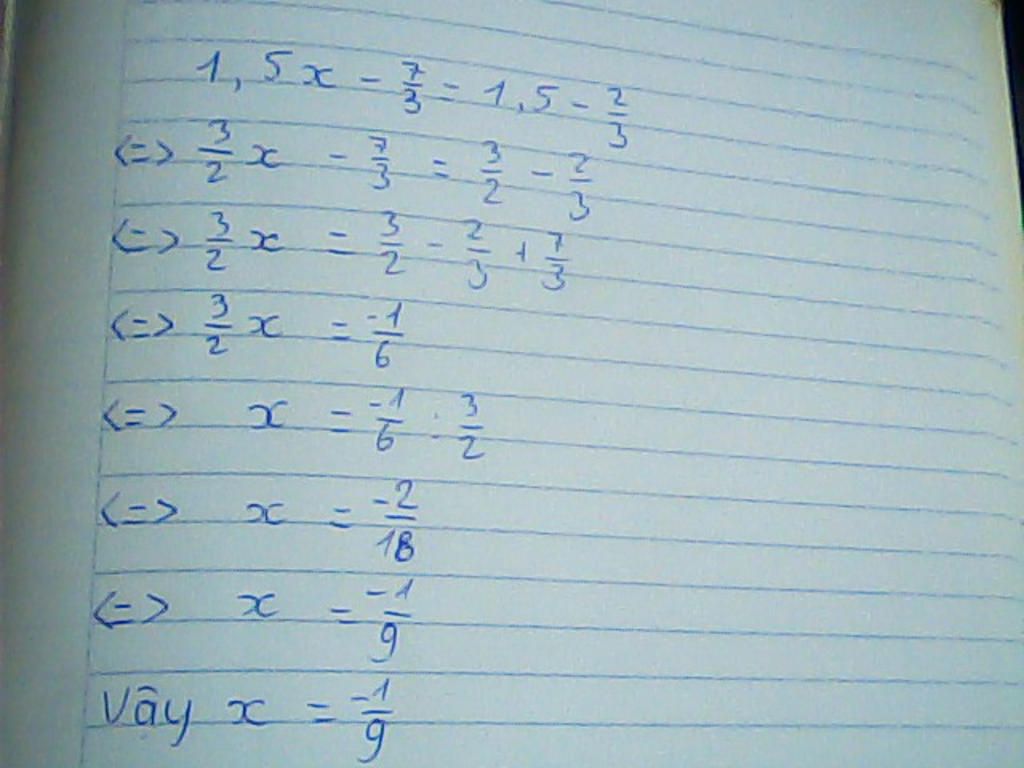 1,5x - 7/3 = 1,5 - 2/3
<=> 3/2 x - 7/3 = 3/2 - 2/3
<=> 3/2 x = 3/2 - 2/3 + 7/3
<=> 3/2 x = -1/6
<=> x = -1/6 : 3/2
<=> x = -2/18
<=> x = -1/9
Vậy x = -1/9